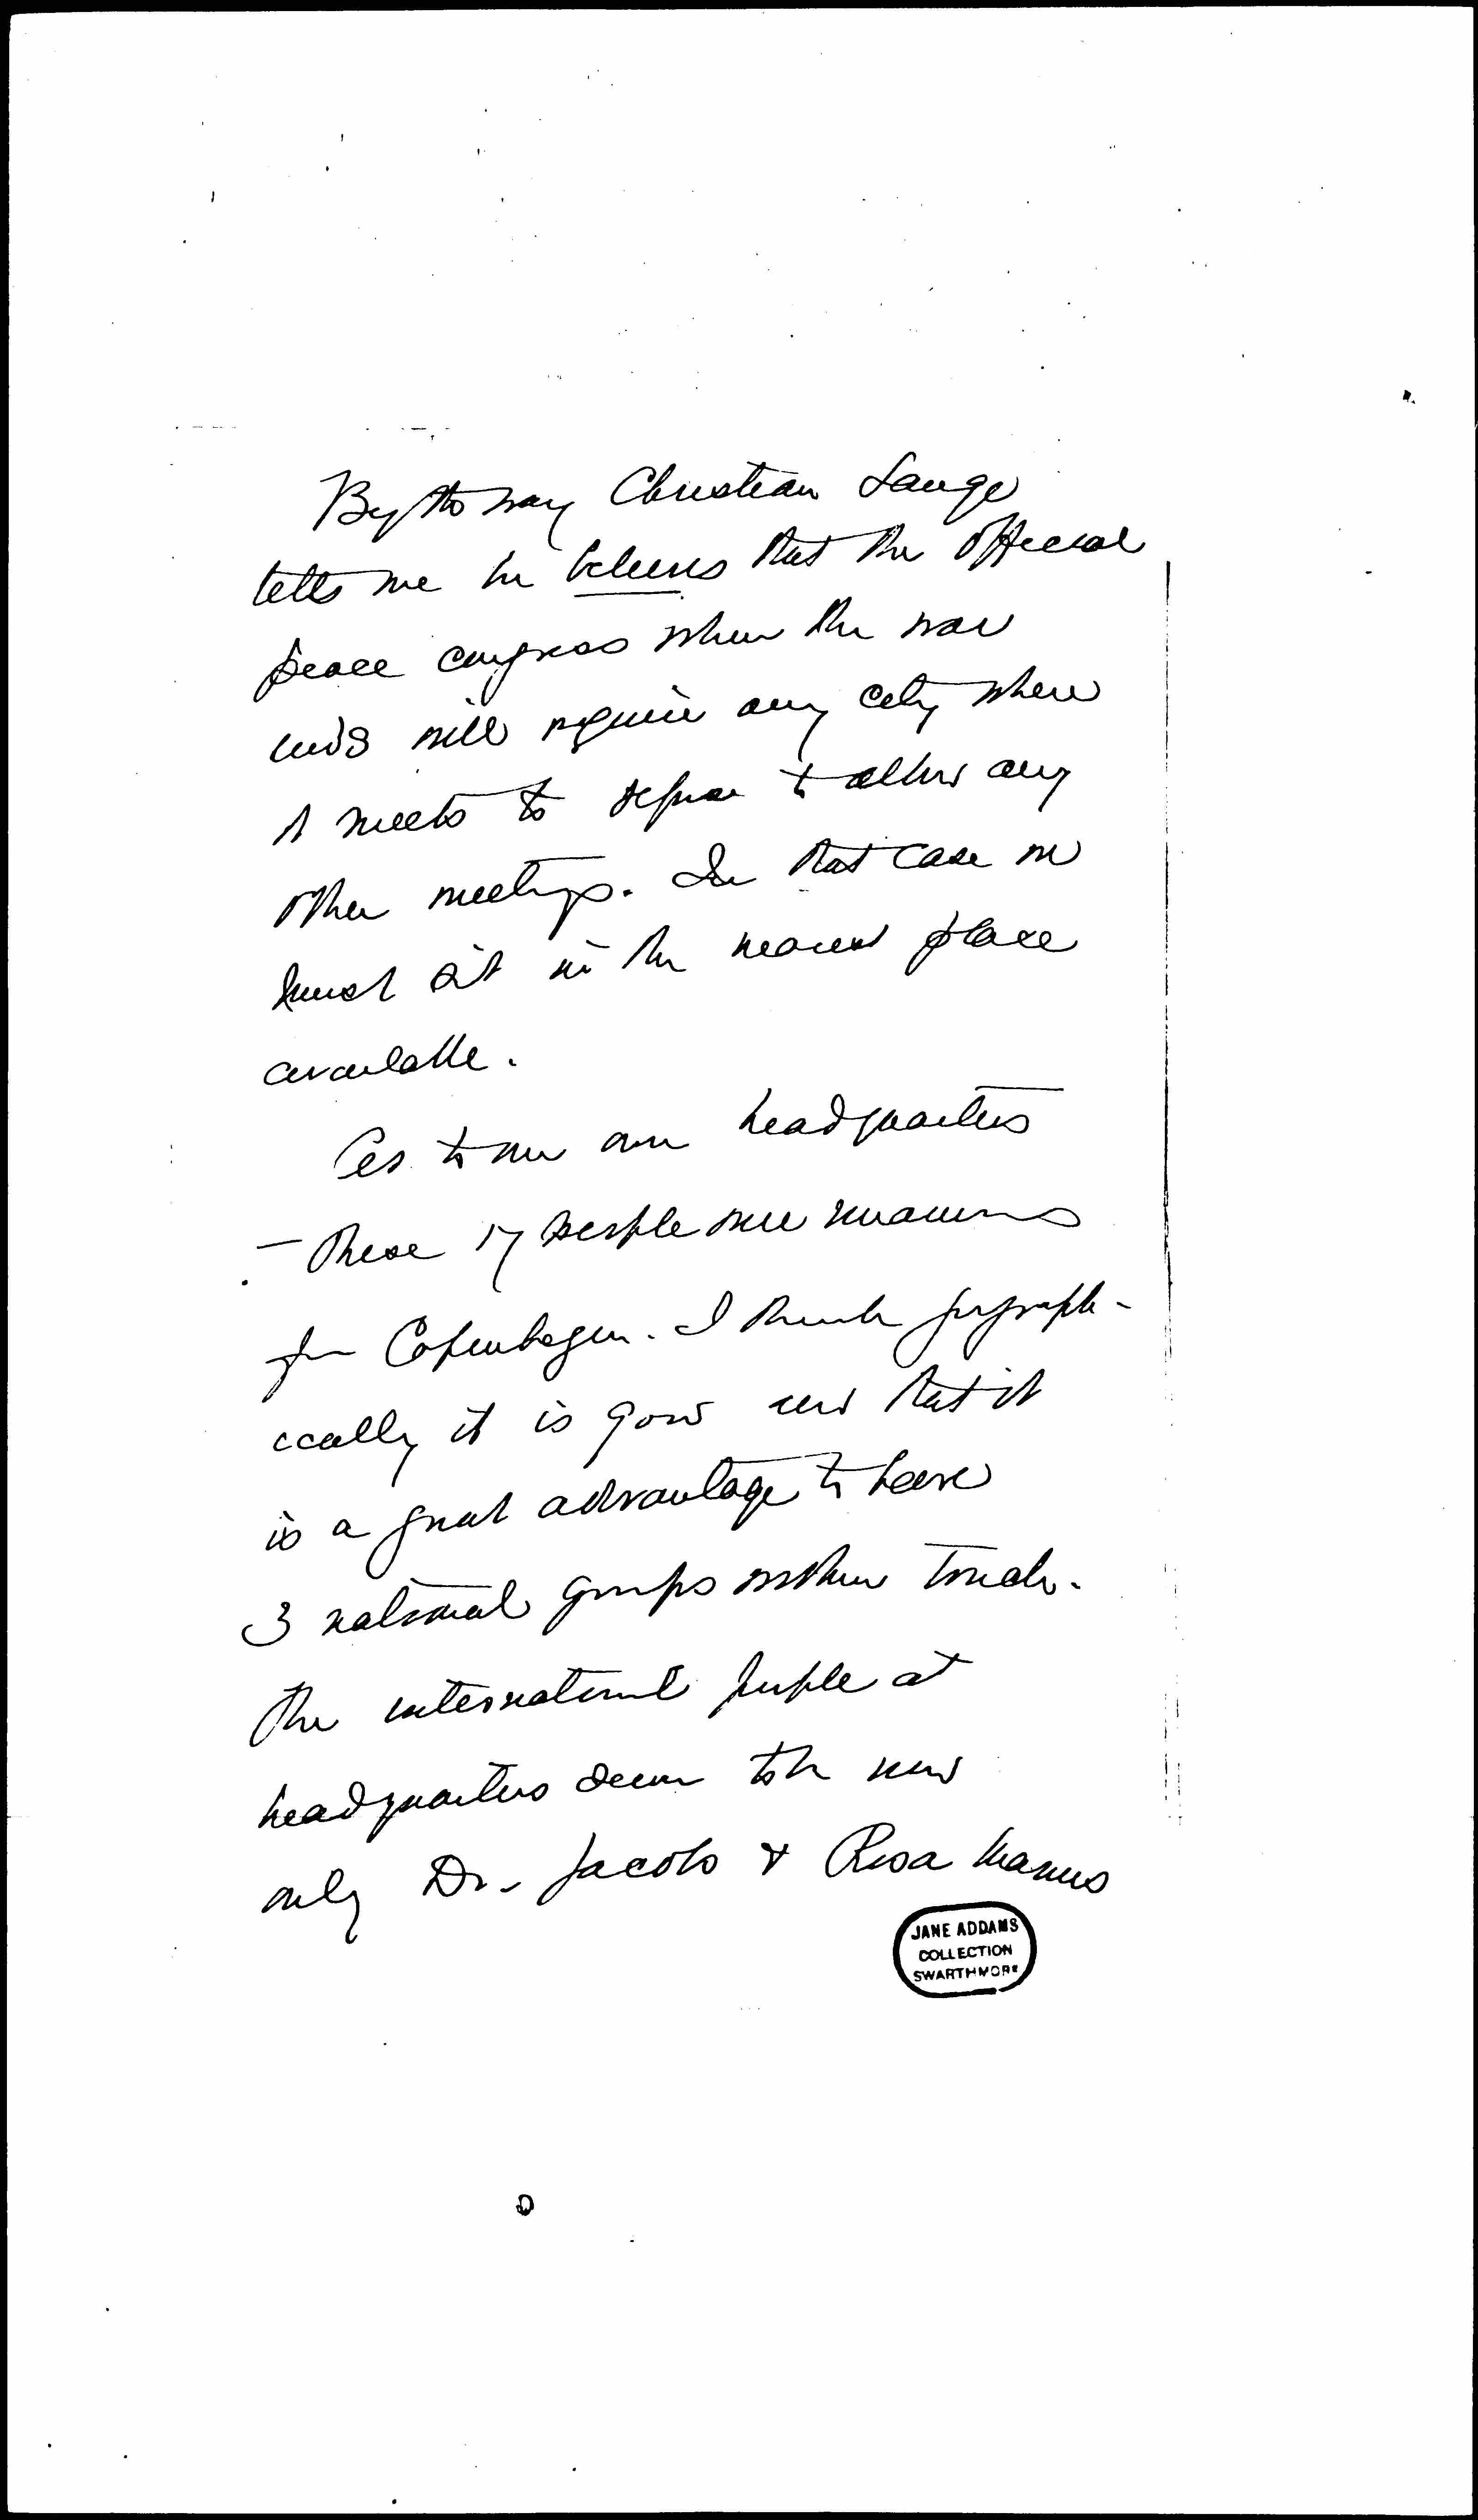 By the way Christian Lange
tells me he believes that the official
peace congress when the war
ends will require any city where
it meets to refuse to allow any
other meetings. In that case we
must sit in the nearest place
available.
As to our own headquarters
- These people are unanimous
for Copenhagen. I think geograph-
ically it is good and that it
is a great advantage to have
3 national groups within touch.
The international people at
headquarters seem to be now
only Dr. Jacobs & Rosa Manus
JANE ADDAMS
COLLECTION
SWARTHMORE